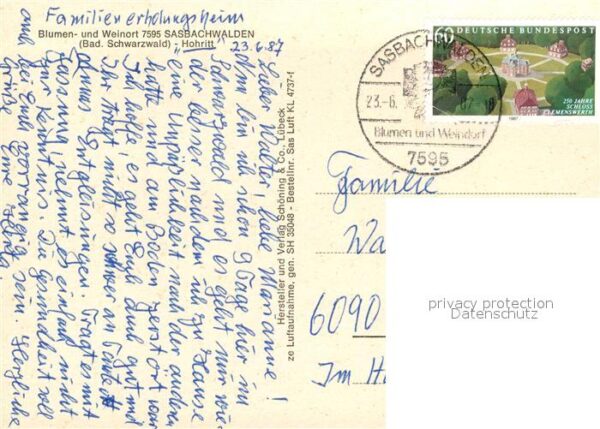 Familienerholungsheim
Blumen- und Weinort 7595 SASBACHWALDEN
(Bad. Schwarzwald) Hohritt
23.6.87
Lieber Walter, liebe Marianne!
Nun bin ich schon 9 Tage hier im
Schwarzwald und es geht mir wie-
der besser nachdem ich zu Hause
eine Unpäßlichkeit nach der andren
hatte und am Boden zerstört war.
Ich hoffe es geht Euch gut und
Ihr tragt nicht so schwer am
Eurer
Fassung, nehmt es einfach nicht
zur Kenntnis. Die Gesundheit soll
bei Euch vorrangig sein. Herzliche
Grüße Eure
auch
Hersteller und Verlag Schöning & Co., Lübeck
ze Luftaufnahme, gen. SH 35048 - Bestellnr. Sas Luft KL 4737-f
SASBACHWALDEN
23.-6.
Blumen und Weindorf
7595
60
DEUTSCHE BUNDESPOST
250 JAHRE
SCHLOSS
CLEMENSWERTH
1987
Familie
Wa
6090
Im H
privacy protection
Datenschutz